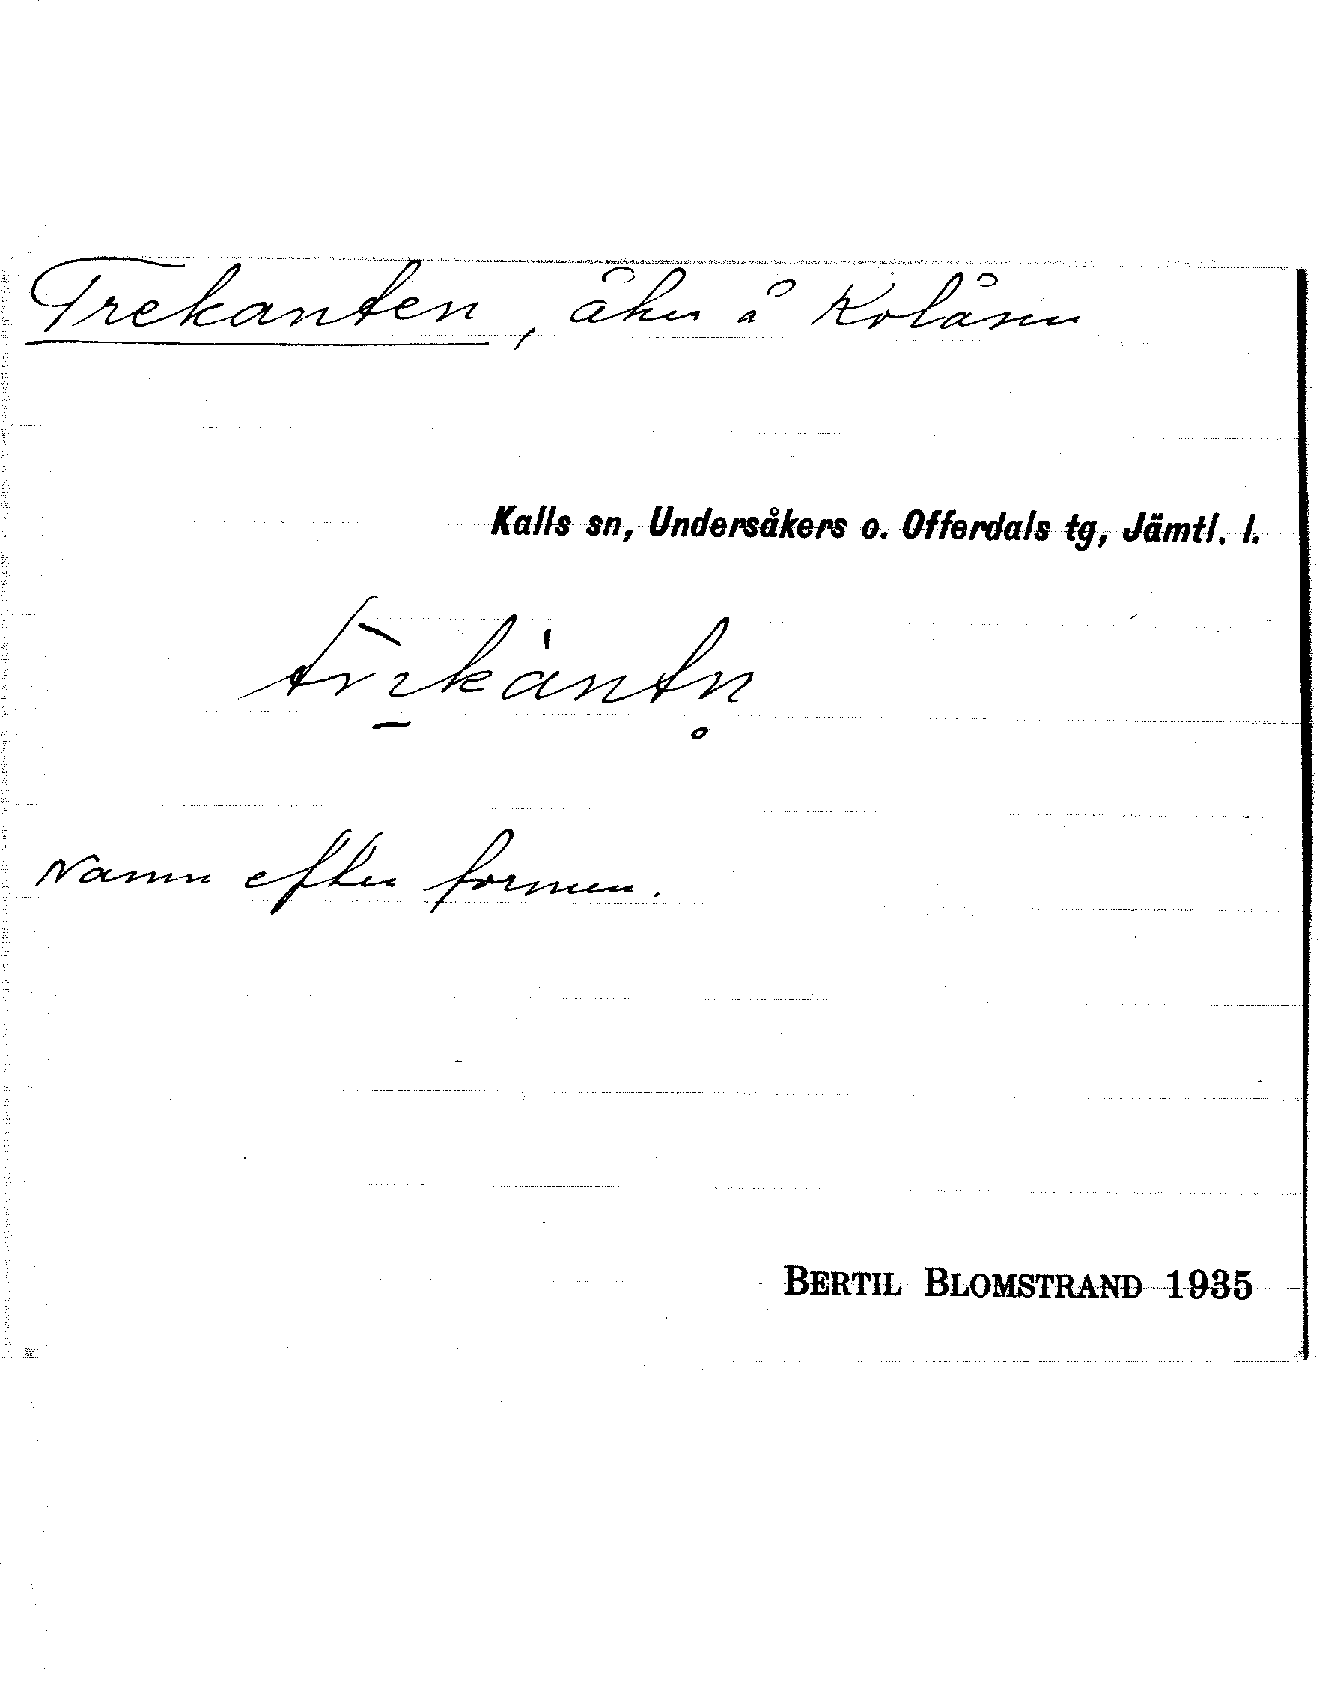 Trekanten, åker å Kolåsen
Kalls sn, Undersåkers o. Offerdals tg, Jämtl. l.
Namn efter formen.
BERTIL BLOMSTRAND 1935